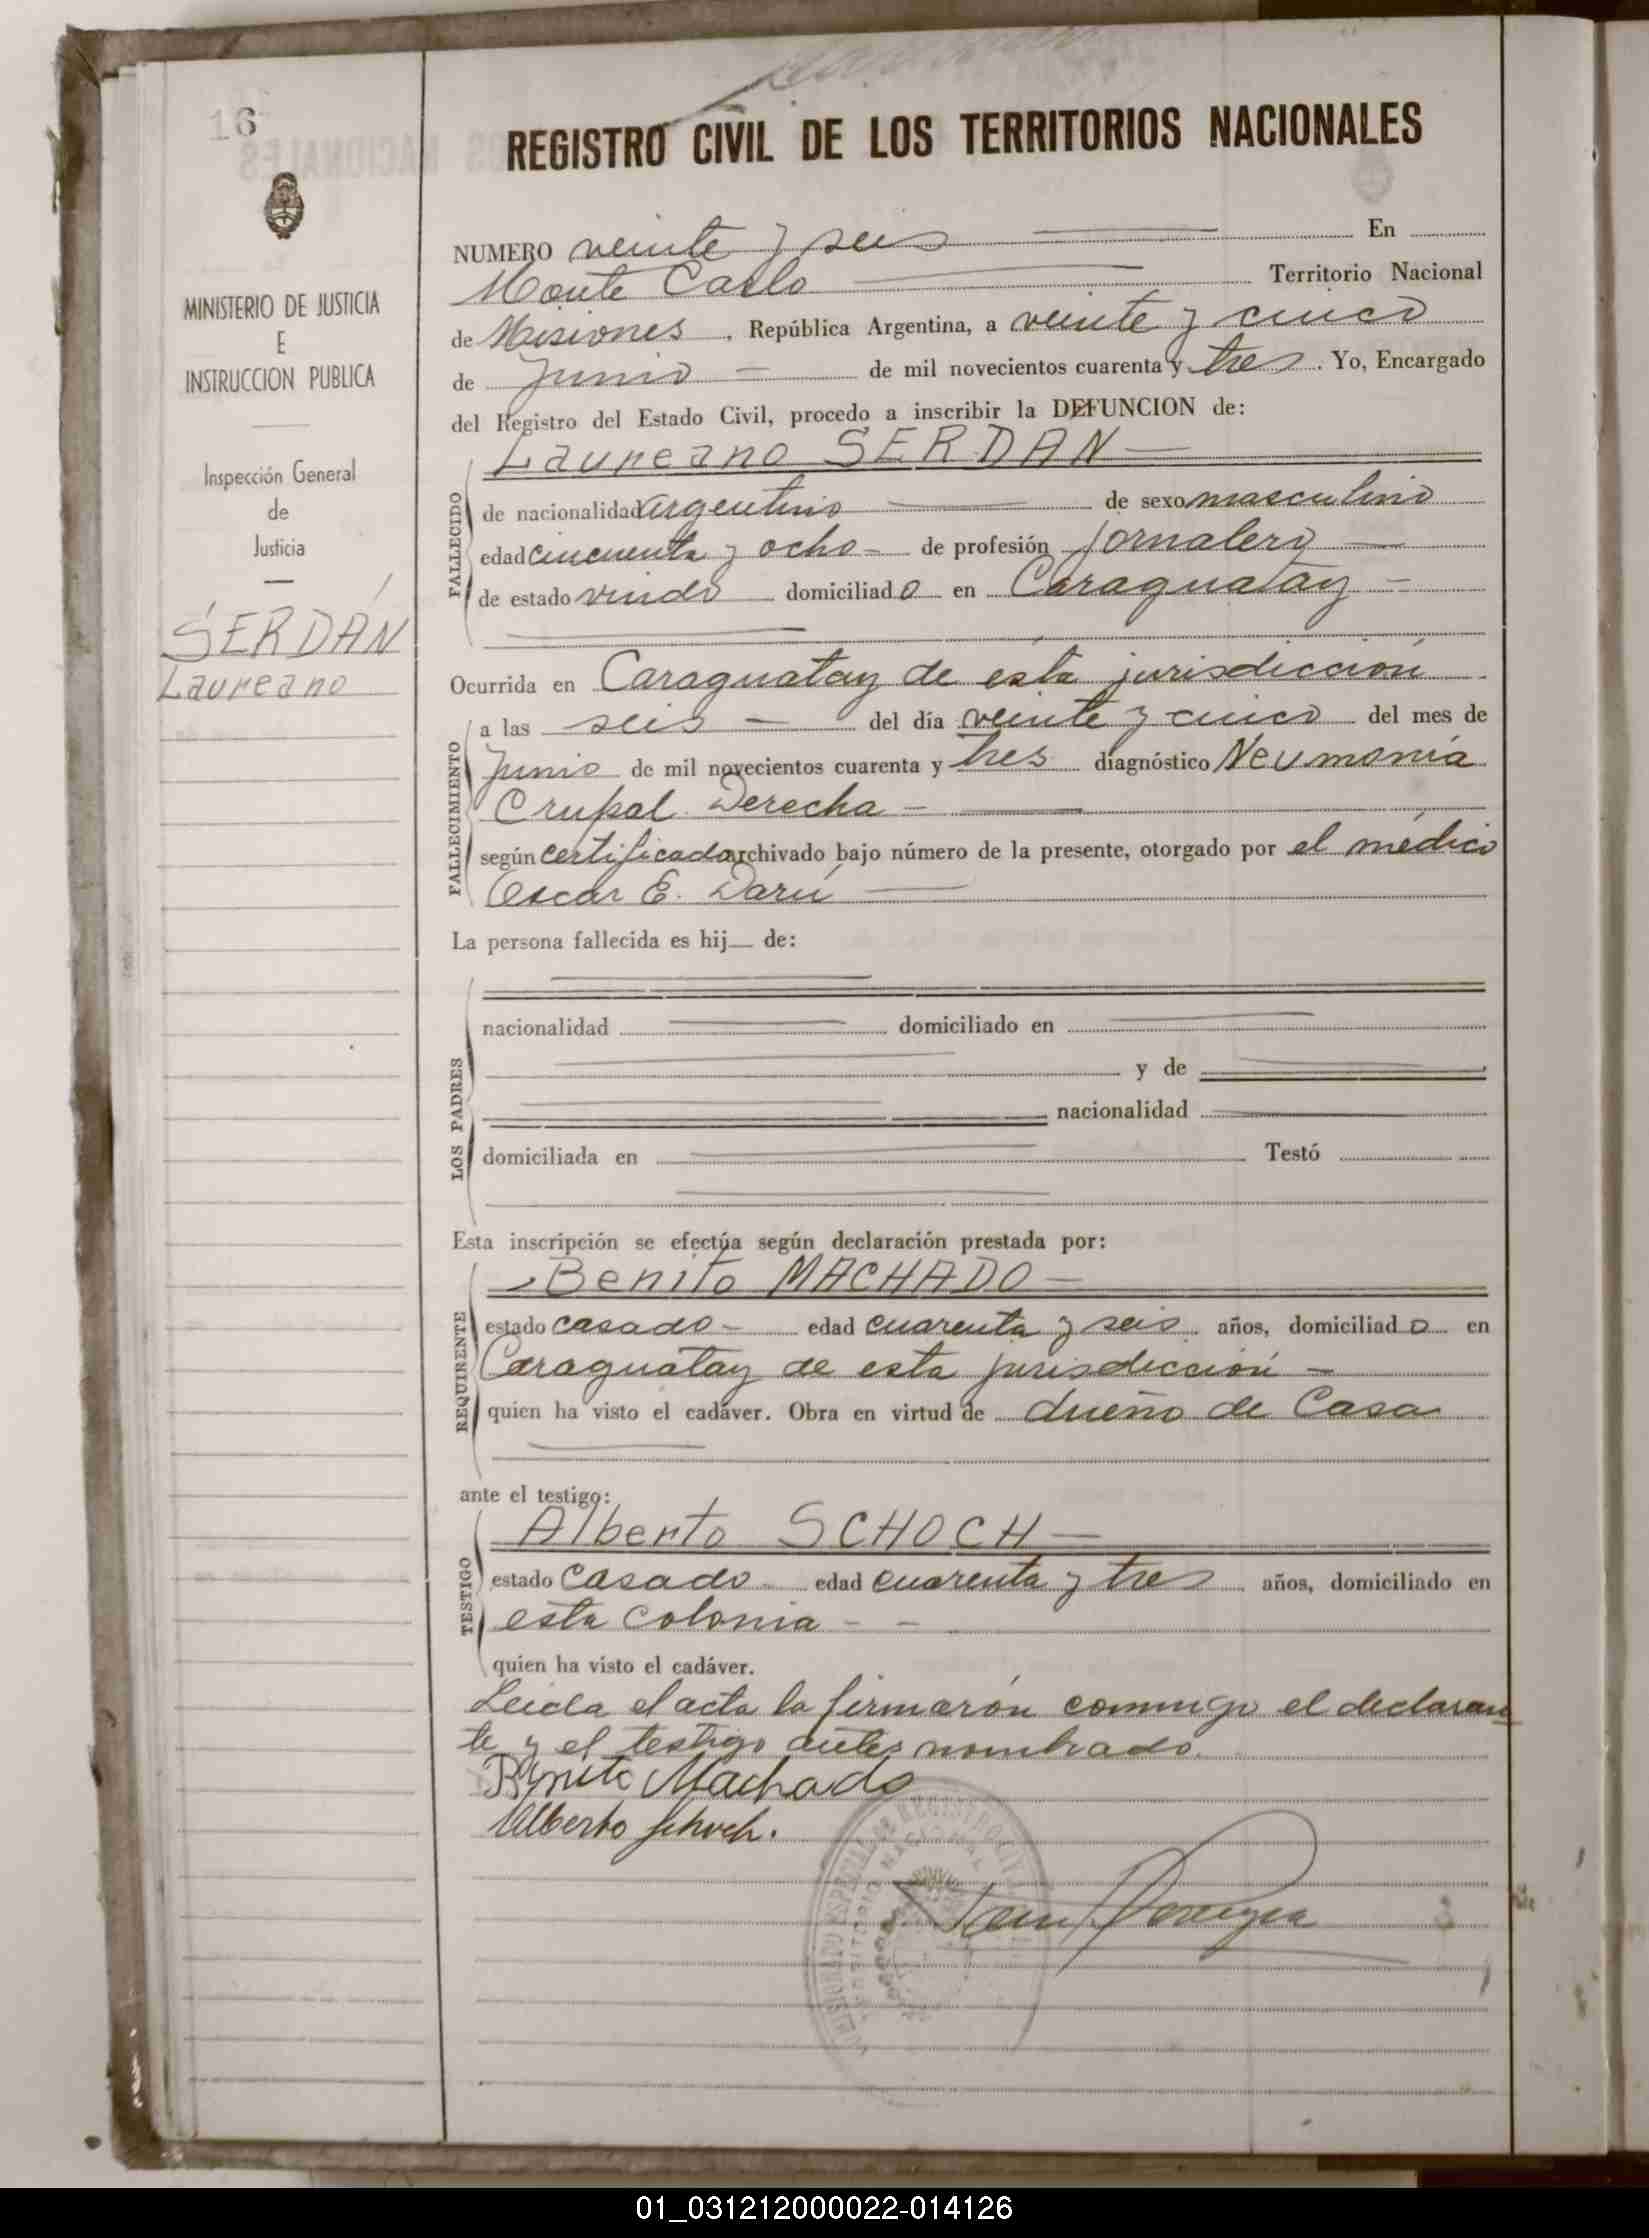 16
REGISTRO CIVIL DE LOS TERRITORIOS NACIONALES
MINISTERIO DE JUSTICIA
E
INSTRUCCION PUBLICA
Inspección General
de
Justicia
SERDÁN
Laureano
NUMERO veinte y seis En
Monte Carlo Territorio Nacional
de Misiones, República Argentina, a veinte y cinco
de Junio de mil novecientos cuarenta y tres. Yo, Encargado
del Registro del Estado Civil, procedo a inscribir la DEFUNCION de:
Laureano SERDAN
FALLECIDO
de nacionalidad argentino de sexo masculino
edad cincuenta y ocho de profesión jornalero
de estado viudo domiciliado en Caraguatay
Ocurrida en Caraguatay de esta jurisdicción
FALLECIMIENTO
a las seis del día veinte y cinco del mes de
Junio de mil novecientos cuarenta y tres diagnóstico Neumonía
Crupal Derecha
según certificado archivado bajo número de la presente, otorgado por el médico
Oscar E. Darú
La persona fallecida es hij de:
LOS PADRES
nacionalidad domiciliado en
y de
nacionalidad
domiciliada en Testó
Esta inscripción se efectúa según declaración prestada por:
REQUIRENTE
Benito MACHADO
estado casado edad cuarenta y seis años, domiciliado en
Caraguatay de esta jurisdicción
quien ha visto el cadáver. Obra en virtud de dueño de Casa
ante el testigo:
TESTIGO
Alberto SCHOCH
estado casado edad cuarenta y tres años, domiciliado en
esta colonia
quien ha visto el cadáver.
Leida el acta la firmarón conmigo el declaran
te y el testigo antes nombrado.
Benito Machado
Alberto Schoch.
01_031212000022-014126